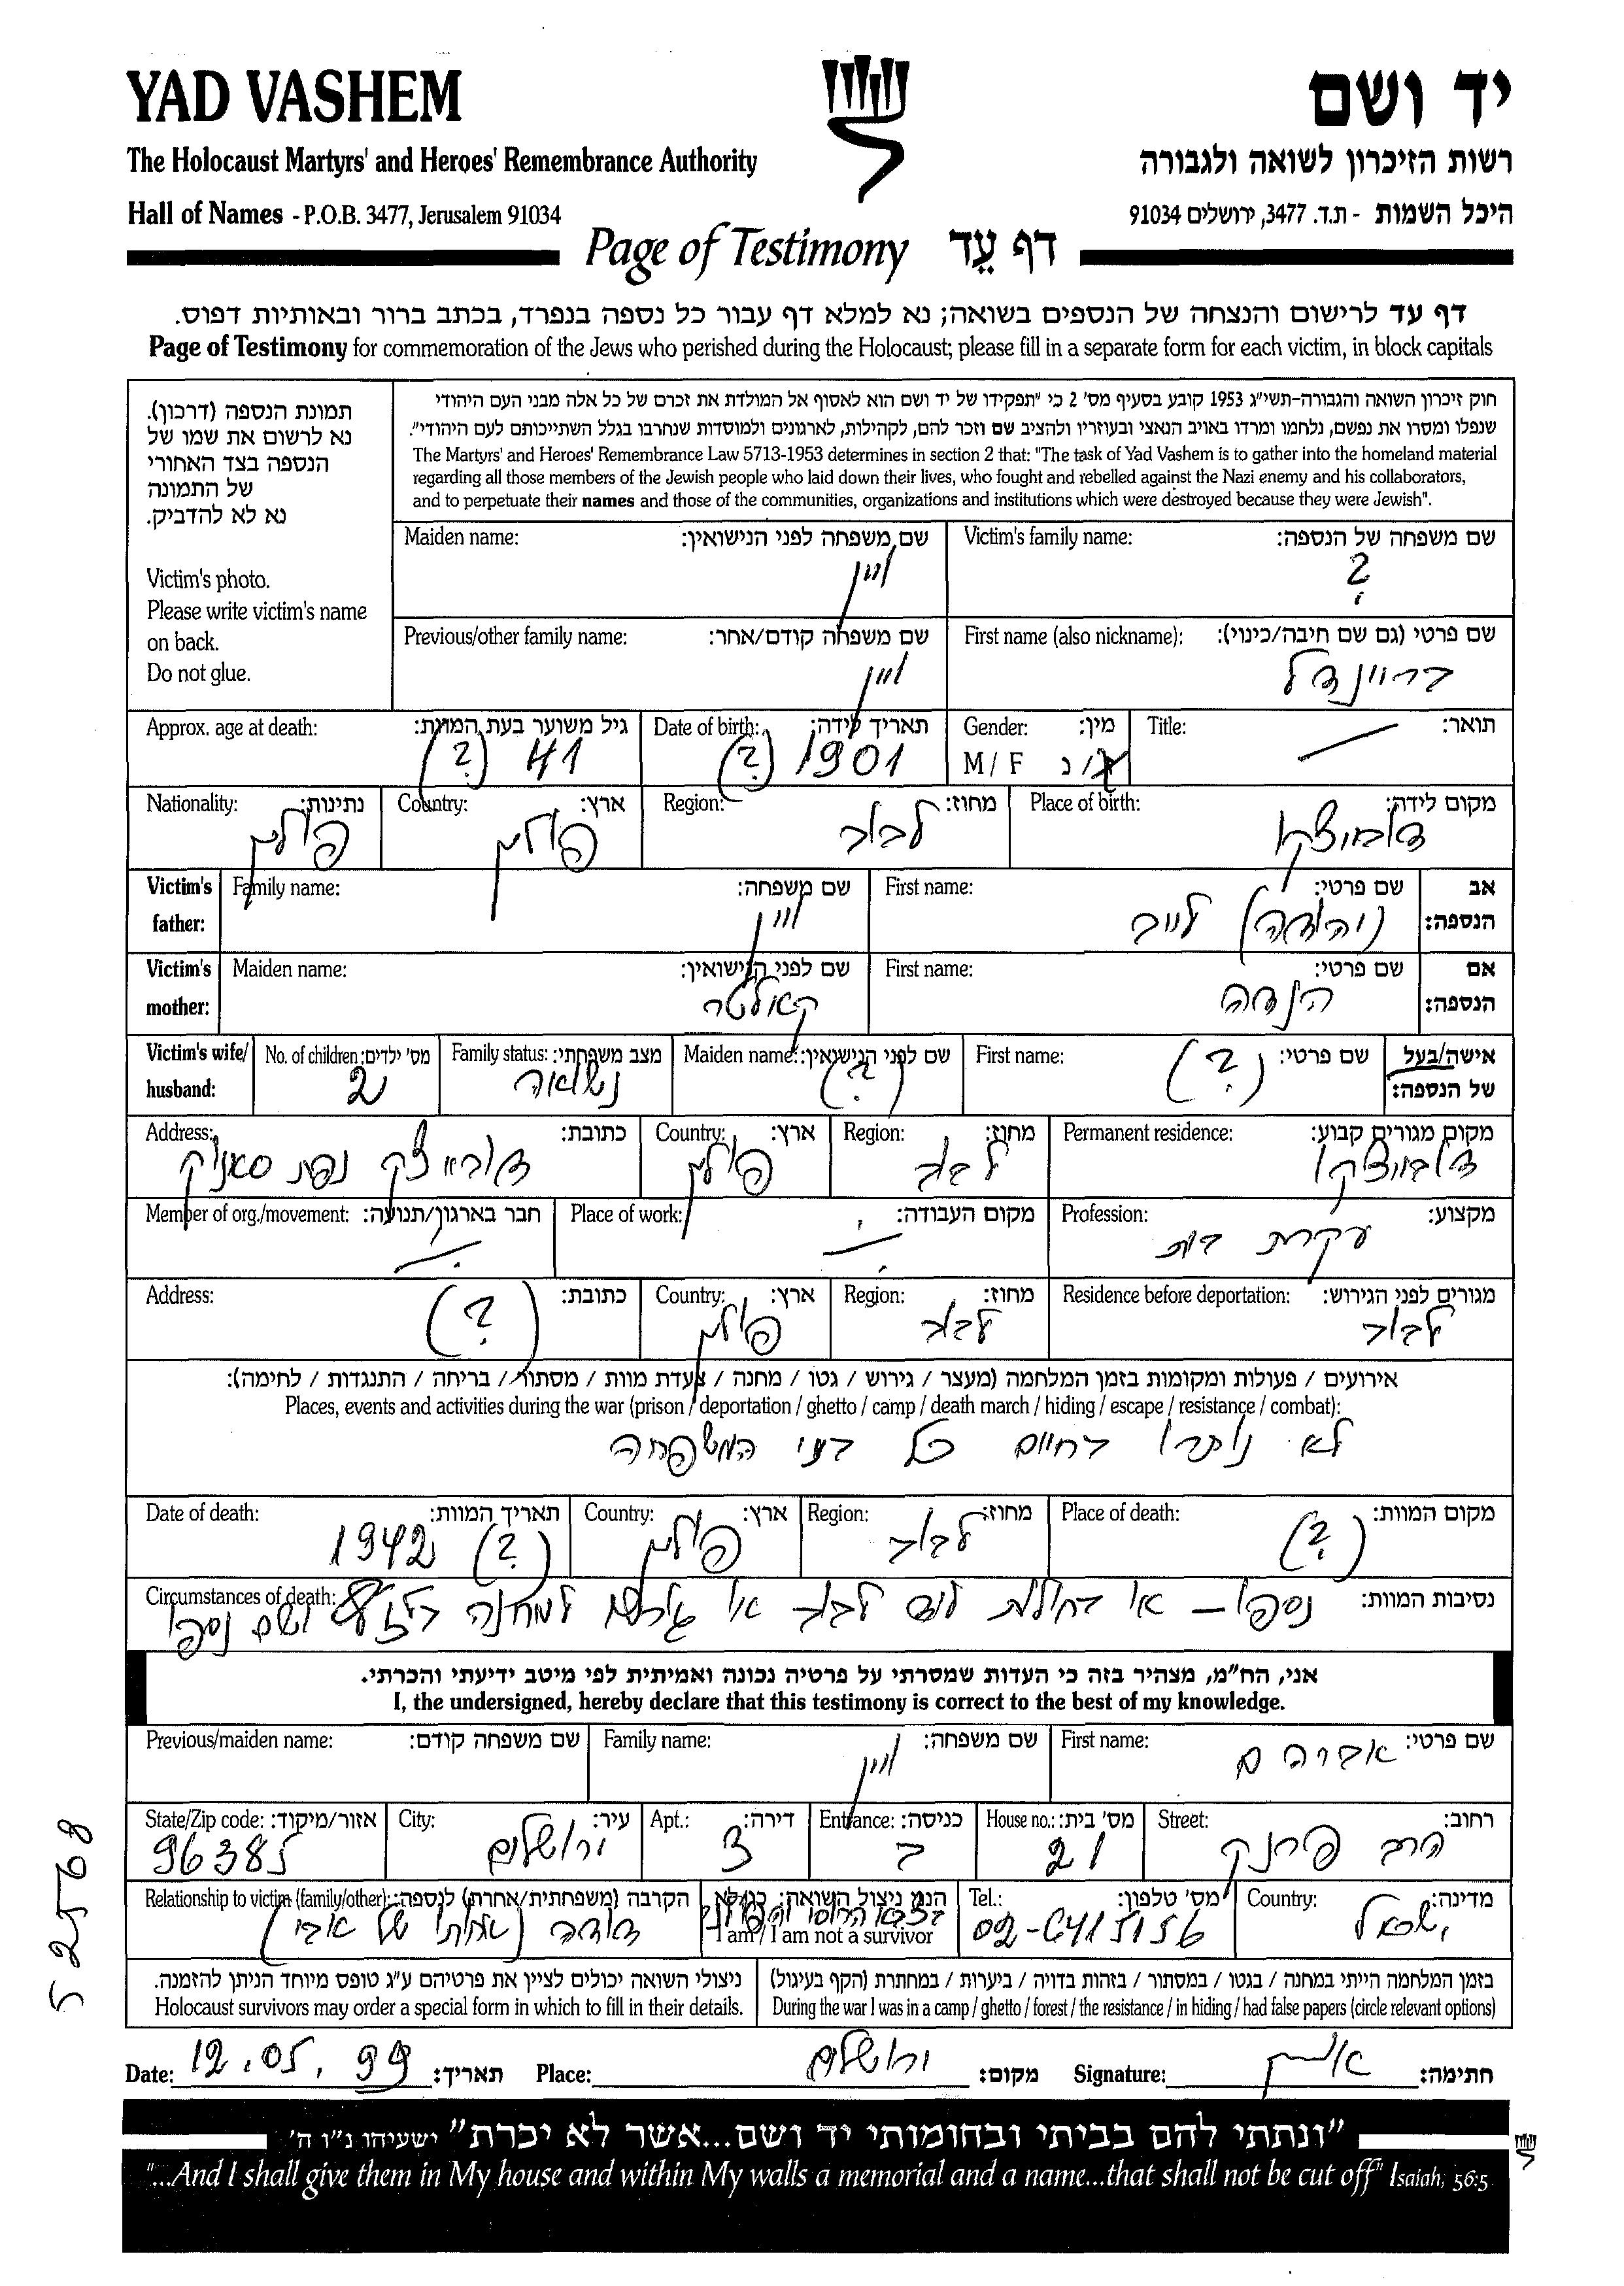 YAD VASHEM
יד ושם
The Holocaust Martyrs' and Heroes' Remembrance Authority
רשות הזיכרון לשואה ולגבורה
Hall of Names - P.O.B. 3477, Jerusalem 91034
היכל השמות - ת.ד. 3477, ירושלים 91034
Page of Testimony דף עֵד
דף עד לרישום והנצחה של הנספים בשואה; נא למלא דף עבור כל נספה בנפרד, בכתב ברור ובאותיות דפוס.
Page of Testimony for commemoration of the Jews who perished during the Holocaust; please fill in a separate form for each victim, in block capitals
תמונת הנספה (דרכון).
נא לרשום את שמו של
הנספה בצד האחורי
של התמונה
נא לא להדביק.
Victim's photo.
Please write victim's name
on back.
Do not glue.
חוק זיכרון השואה והגבורה-תשי"ג 1953 קובע בסעיף מס' 2 כי "תפקידו של יד ושם הוא לאסוף אל המולדת את זכרם של כל אלה מבני העם היהודי
שנפלו ומסרו את נפשם, נלחמו ומרדו באויב הנאצי ובעוזריו ולהציב שם וזכר להם, לקהילות, לארגונים ולמוסדות שנחרבו בגלל השתייכותם לעם היהודי".
The Martyrs' and Heroes' Remembrance Law 5713-1953 determines in section 2 that: "The task of Yad Vashem is to gather into the homeland material
regarding all those members of the Jewish people who laid down their lives, who fought and rebelled against the Nazi enemy and his collaborators,
and to perpetuate their names and those of the communities, organizations and institutions which were destroyed because they were Jewish".
Victim's family name: שם משפחה של הנספה:
?
Maiden name: שם משפחה לפני הנישואין:
ווין
First name (also nickname): שם פרטי (גם שם חיבה/כינוי):
בריינדל
Previous/other family name: שם משפחה קודם/אחר:
ווין
Title: תואר:
Gender: מין:
M / F ז/נ
Date of birth: תאריך לידה:
1901 (?)
Approx. age at death: גיל משוער בעת המוות:
41 (?)
Place of birth: מקום לידה:
Region: מחוז:
לבוב
Country: ארץ:
פולין
Nationality: נתינות:
פולין
Victim's father: אב הנספה:
First name: שם פרטי:
(יהודה) לייב
Family name: שם משפחה:
ווין
Victim's mother: אם הנספה:
First name: שם פרטי:
הנדה
Maiden name: שם לפני הנישואין:
Victim's wife/husband: אישה/בעל של הנספה:
First name: שם פרטי:
(?)
Maiden name: שם לפני הנישואין:
(?)
Family status: מצב משפחתי:
נשואה
No. of children: מס' ילדים:
2
Permanent residence: מקום מגורים קבוע:
Region: מחוז:
לבוב
Country: ארץ:
פולין
Address: כתובת:
נפת סאנוק
Profession: מקצוע:
עקרת בית
Place of work: מקום העבודה:
Member of org./movement: חבר בארגון/תנועה:
Residence before deportation: מגורים לפני הגירוש:
לבוב
Region: מחוז:
לבוב
Country: ארץ:
פולין
Address: כתובת:
(?)
אירועים / פעולות ומקומות בזמן המלחמה (מעצר / גירוש / גטו / מחנה / צעדת מוות / מסתור / בריחה / התנגדות / לחימה):
Places, events and activities during the war (prison / deportation / ghetto / camp / death march / hiding / escape / resistance / combat):
לא נותרו בחיים כל בני המשפחה
Place of death: מקום המוות:
(?)
Region: מחוז:
לבוב
Country: ארץ:
פולין
Date of death: תאריך המוות:
(?) 1942
Circumstances of death: נסיבות המוות:
נספו – או לבוב או למחנה ושם נספו
אני, הח"מ, מצהיר בזה כי העדות שמסרתי על פרטיה נכונה ואמיתית לפי מיטב ידיעתי והכרתי.
I, the undersigned, hereby declare that this testimony is correct to the best of my knowledge.
First name: שם פרטי:
אברהם
Family name: שם משפחה:
ווין
Previous/maiden name: שם משפחה קודם:
Street: רחוב:
הרב פרנק
House no.: מס' בית:
21
Entrance: כניסה:
ב
Apt.: דירה:
3
City: עיר:
ירושלים
State/Zip code: אזור/מיקוד:
96385
Country: מדינה:
ישראל
Tel.: מס' טלפון:
02-6415156
הנני ניצול השואה:
I am / I am not a survivor
Relationship to victim (family/other): הקרבה (משפחתית/אחרת) לנספה:
דודה (אחותו של אבי)
בזמן המלחמה הייתי במחנה / בגטו / במסתור / בזהות בדויה / ביערות / במחתרת (הקף בעיגול)
During the war I was in a camp / ghetto / forest / the resistance / in hiding / had false papers (circle relevant options)
ניצולי השואה יכולים לציין את פרטיהם ע"ג טופס מיוחד הניתן להזמנה.
Holocaust survivors may order a special form in which to fill in their details.
Date: 12.05.99 תאריך:
Place: ירושלים מקום:
Signature: חתימה:
52568
"ונתתי להם בביתי ובחומותי יד ושם...אשר לא יכרת" ישעיהו נ"ו ה'
"...And I shall give them in My house and within My walls a memorial and a name...that shall not be cut off" Isaiah, 56:5